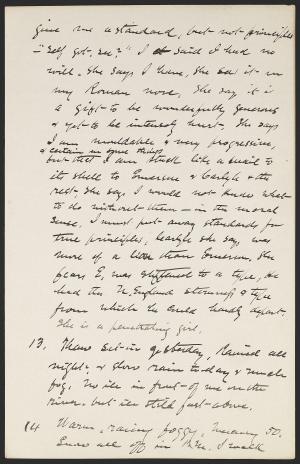 give me a standard, but not principles
- "Self got, see?" I said I had no
will. She says I have, she saw it in
my Roman nose. She say it is
a gift to be wonderfully generous
& yet to be intensely hurt. She says
I am mouldable & very progressive,
& certain in some things
but that I am stuck like a snail to
its shell to Emerson & Carlyle & the
rest. She says I would not know what
to do without them — in the moral
sense. I must put away standards for
true principles, Carlyle she says was
more of a than Emerson. She
fears E. was stiffened to a type, he
had the N. England sternness & type
from which he could hardly depart.
She is a penetrating girl.
13. Thaw set in yesterday, rained all
night, & slow rain to-day & much
fog. No ice in front of me on the
river. but ice still fast above.
14 Warm, rainy foggy, mercury 50.
Snow all off in I walk